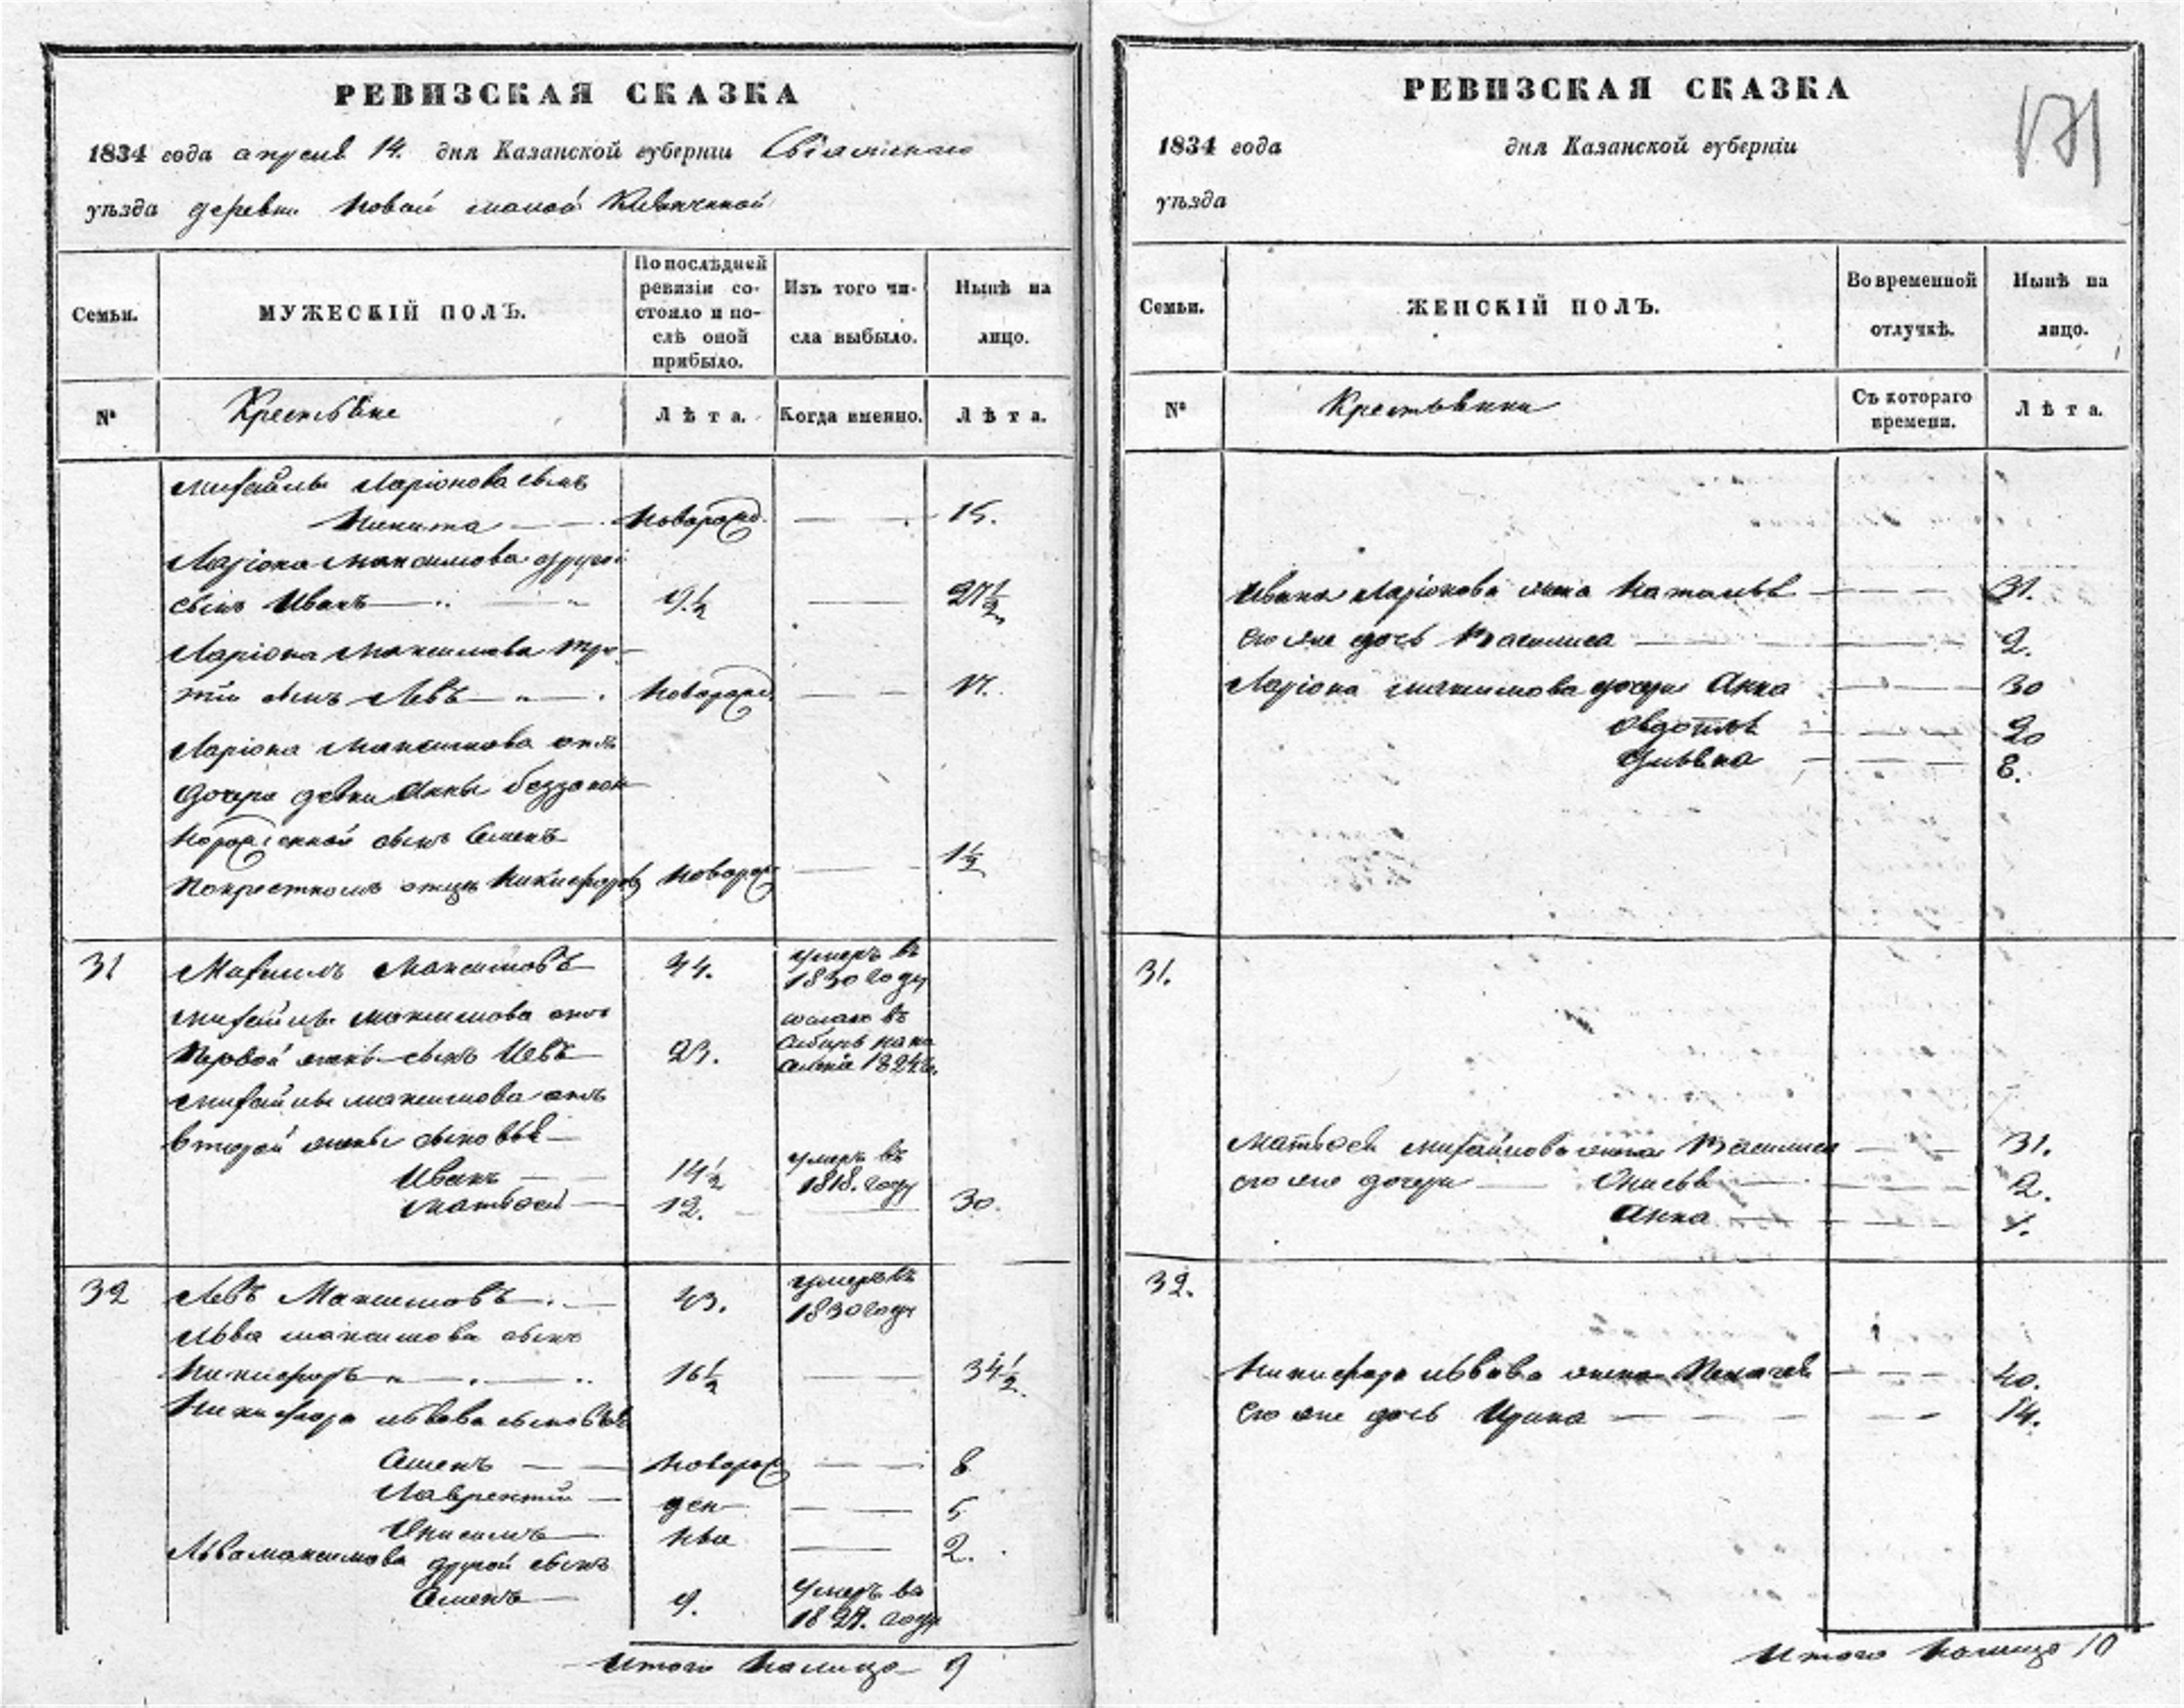 РЕВИЗСКАЯ СКАЗКА
1834 года апреля 14. дня Казанской губернiи Свiяжскаго
уѣзда деревни Новой малой
Семьи.
МУЖЕСКIЙ ПОЛЪ.
По послѣдней
ревизiи со-
стояло и по-
слѣ оной
прибыло.
Изъ того чи-
сла выбыло.
Нынѣ на
лицо.
№
Крестьяне
Лѣта.
Когда именно.
Лѣта.
Михайлы Ларiонова сынъ
Никита новорожд. 15.
Ларiона Максимова другой
сынъ Иванъ 9½ 27½
Ларiона Максимова тре-
тiй сынъ Левъ новорожд.
Ларiона Максимова отъ
дочери девки Анны беззакон-
норожденной сынъ Семенъ
по крестномъ отцѣ Никифоровъ новорож 1½
31 Михаилъ Максимовъ 44. умеръ въ
1830 году
Михайлы Максимова отъ
первой жены сынъ Левъ 23. сосланъ въ
Сибирь на по
селенiе 1824 г.
Михайлы Максимова отъ
второй жены сыновья
Иванъ 14½ умеръ въ
1818. году
Матвей 12. 30.
32 Левъ Максимовъ 43. умеръ въ
1830 году
Льва Максимова сынъ
Никифоръ 16½ 34½
Никифора Львова сыновья
Семенъ новорож 8
Лаврентiй ден 5
Онисимъ ные 2.
Льва Максимова другой сынъ
Семенъ 9. умеръ въ
1827. году
Итого налицо 9
РЕВИЗСКАЯ СКАЗКА
171
1834 года дня Казанской губернiи
уѣзда
Семьи.
ЖЕНСКIЙ ПОЛЪ.
Во временной
отлучкѣ.
Нынѣ на
лицо.
№
Крестьянки
Съ котораго
времени.
Лѣта.
Ивана Ларiонова жена Наталья 31.
его же дочь Василиса 2.
Ларiона Максимова дочери Анна 30
Овдотья 20
Ульяна 8.
31.
Матвея Михайлова жена Василиса 31.
его же дочери Анисья 2.
Анна 1.
32.
Никифора Львова жена Пелагея 40.
его же дочь Ирина 14.
Итого налицо 10